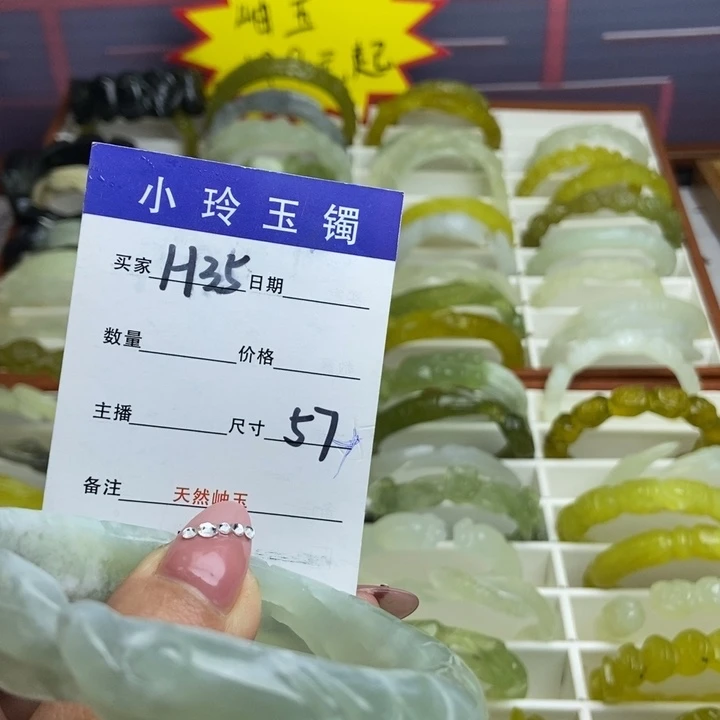 岫玉
元起
小玲玉镯
买家 H35 日期
数量 价格
主播 尺寸 57
备注 天然岫玉